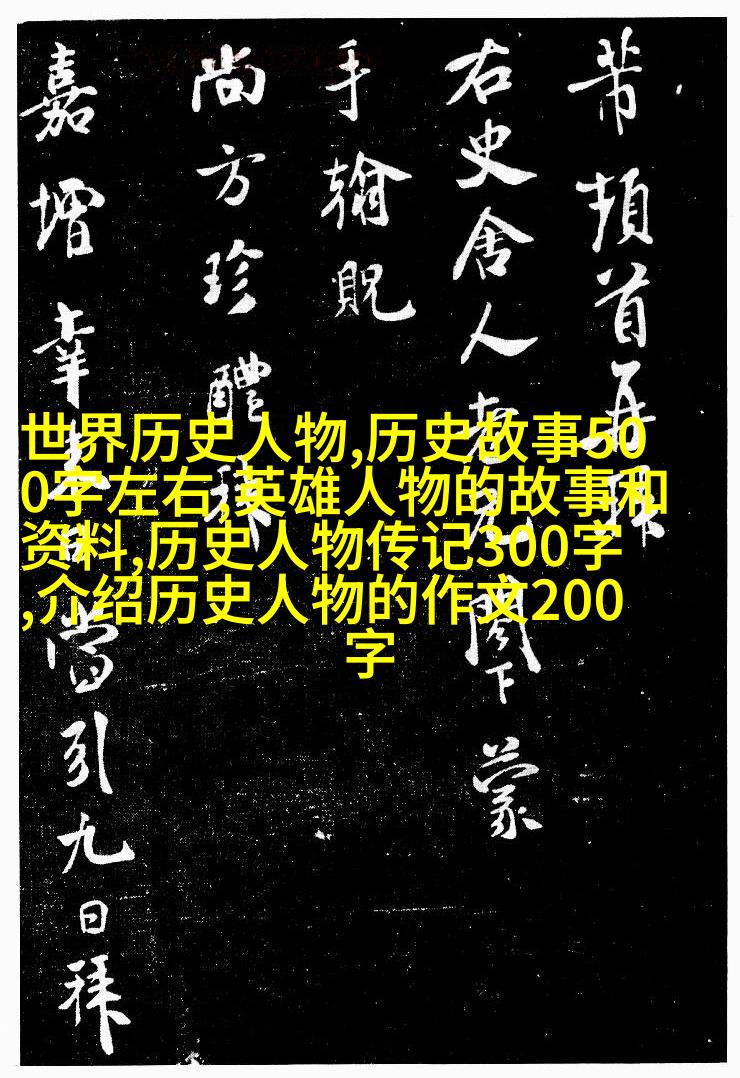 芾頓首再拜
右史舍人老兄閣下蒙
手翰貺
尚方珍醴
嘉增幸當引九日拜
世界历史人物,历史故事50
0字左右,英雄人物的故事和
资料,历史人物传记300字
,介绍历史人物的作文200
字